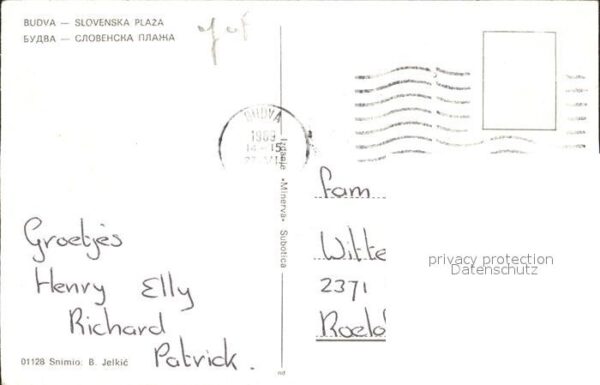 BUDVA — SLOVENSKA PLAŽA
БУДВА — СЛОВЕНСКА ПЛАЖА
BUDVA
14-15
Izdanje «Minerva» Subotica
Groetjes
Henry Elly
Richard
Patrick.
fam
Witte
2371
Roelo
privacy protection
Datenschutz
01128 Snimio: B. Jelkić